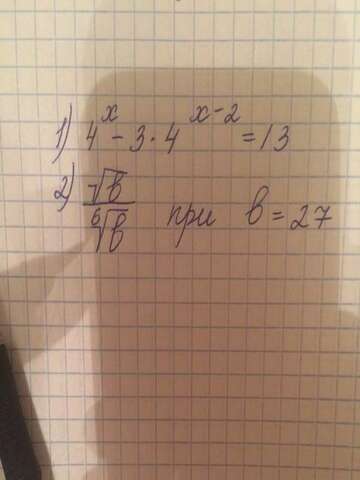 1) 4^x - 3 · 4^{x-2} = 13
2) \frac{\sqrt{b}}{\sqrt[6]{b}} при b = 27